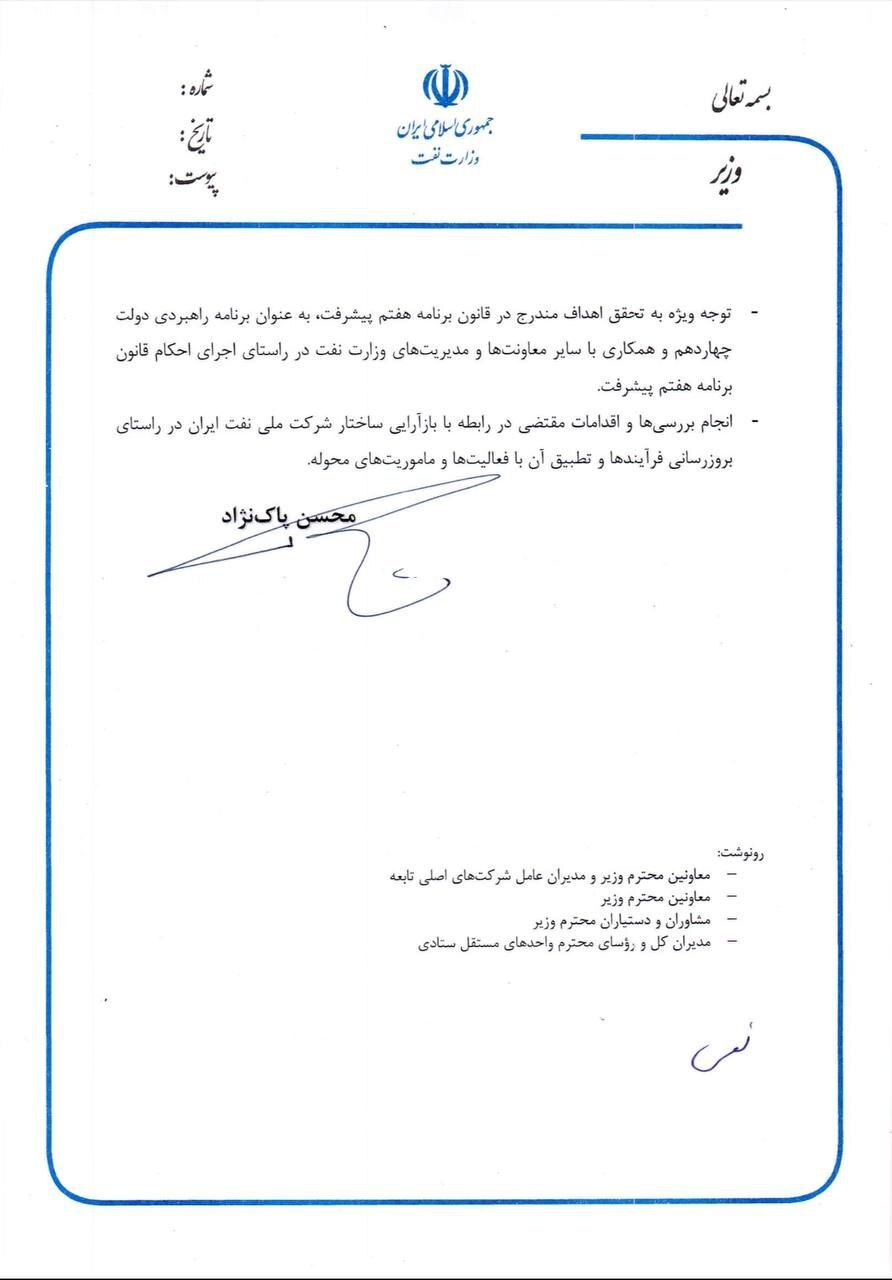 بسمه تعالی
وزیر
جمهوری اسلامی ایران
وزارت نفت
شماره :
تاریخ :
پیوست:
- توجه ویژه به تحقق اهداف مندرج در قانون برنامه هفتم پیشرفت، به عنوان برنامه راهبردی دولت
چهاردهم و همکاری با سایر معاونت‌ها و مدیریت‌های وزارت نفت در راستای اجرای احکام قانون
برنامه هفتم پیشرفت.
- انجام بررسی‌ها و اقدامات مقتضی در رابطه با بازآرایی ساختار شرکت ملی نفت ایران در راستای
بروزرسانی فرآیندها و تطبیق آن با فعالیت‌ها و ماموریت‌های محوله.
محسن پاک‌نژاد
رونوشت:
– معاونین محترم وزیر و مدیران عامل شرکت‌های اصلی تابعه
– معاونین محترم وزیر
– مشاوران و دستیاران محترم وزیر
– مدیران کل و رؤسای محترم واحدهای مستقل ستادی